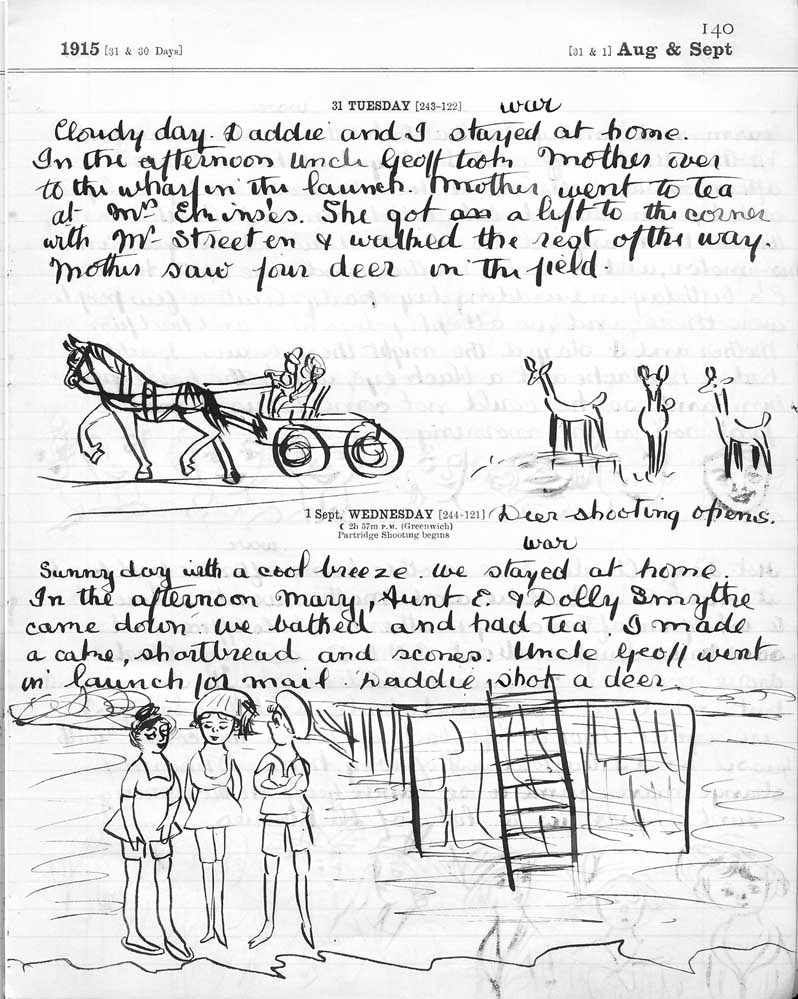 140
1915 [31 & 30 Days] [31 & 1] Aug & Sept
31 TUESDAY [243-122] war
Cloudy day. Daddie and I stayed at home.
In the afternoon Uncle Geoff took Mother over
to the wharf in the launch. Mother went to tea
at Mrs Elkinses. She got a lift to the corner
with Mr Streeten & walked the rest of the way.
Mother saw four deer in the field.
1 Sept. WEDNESDAY [244-121] Deer shooting opens.
☾ 2h 57m P.M. (Greenwich)
Partridge Shooting begins
war
Sunny day with a cool breeze. we stayed at home.
In the afternoon Mary, Aunt E. & Dolly Smythe
came down we bathed and had tea. I made
a cake, shortbread and scones. Uncle Geoff went
in launch for mail. Daddie shot a deer.